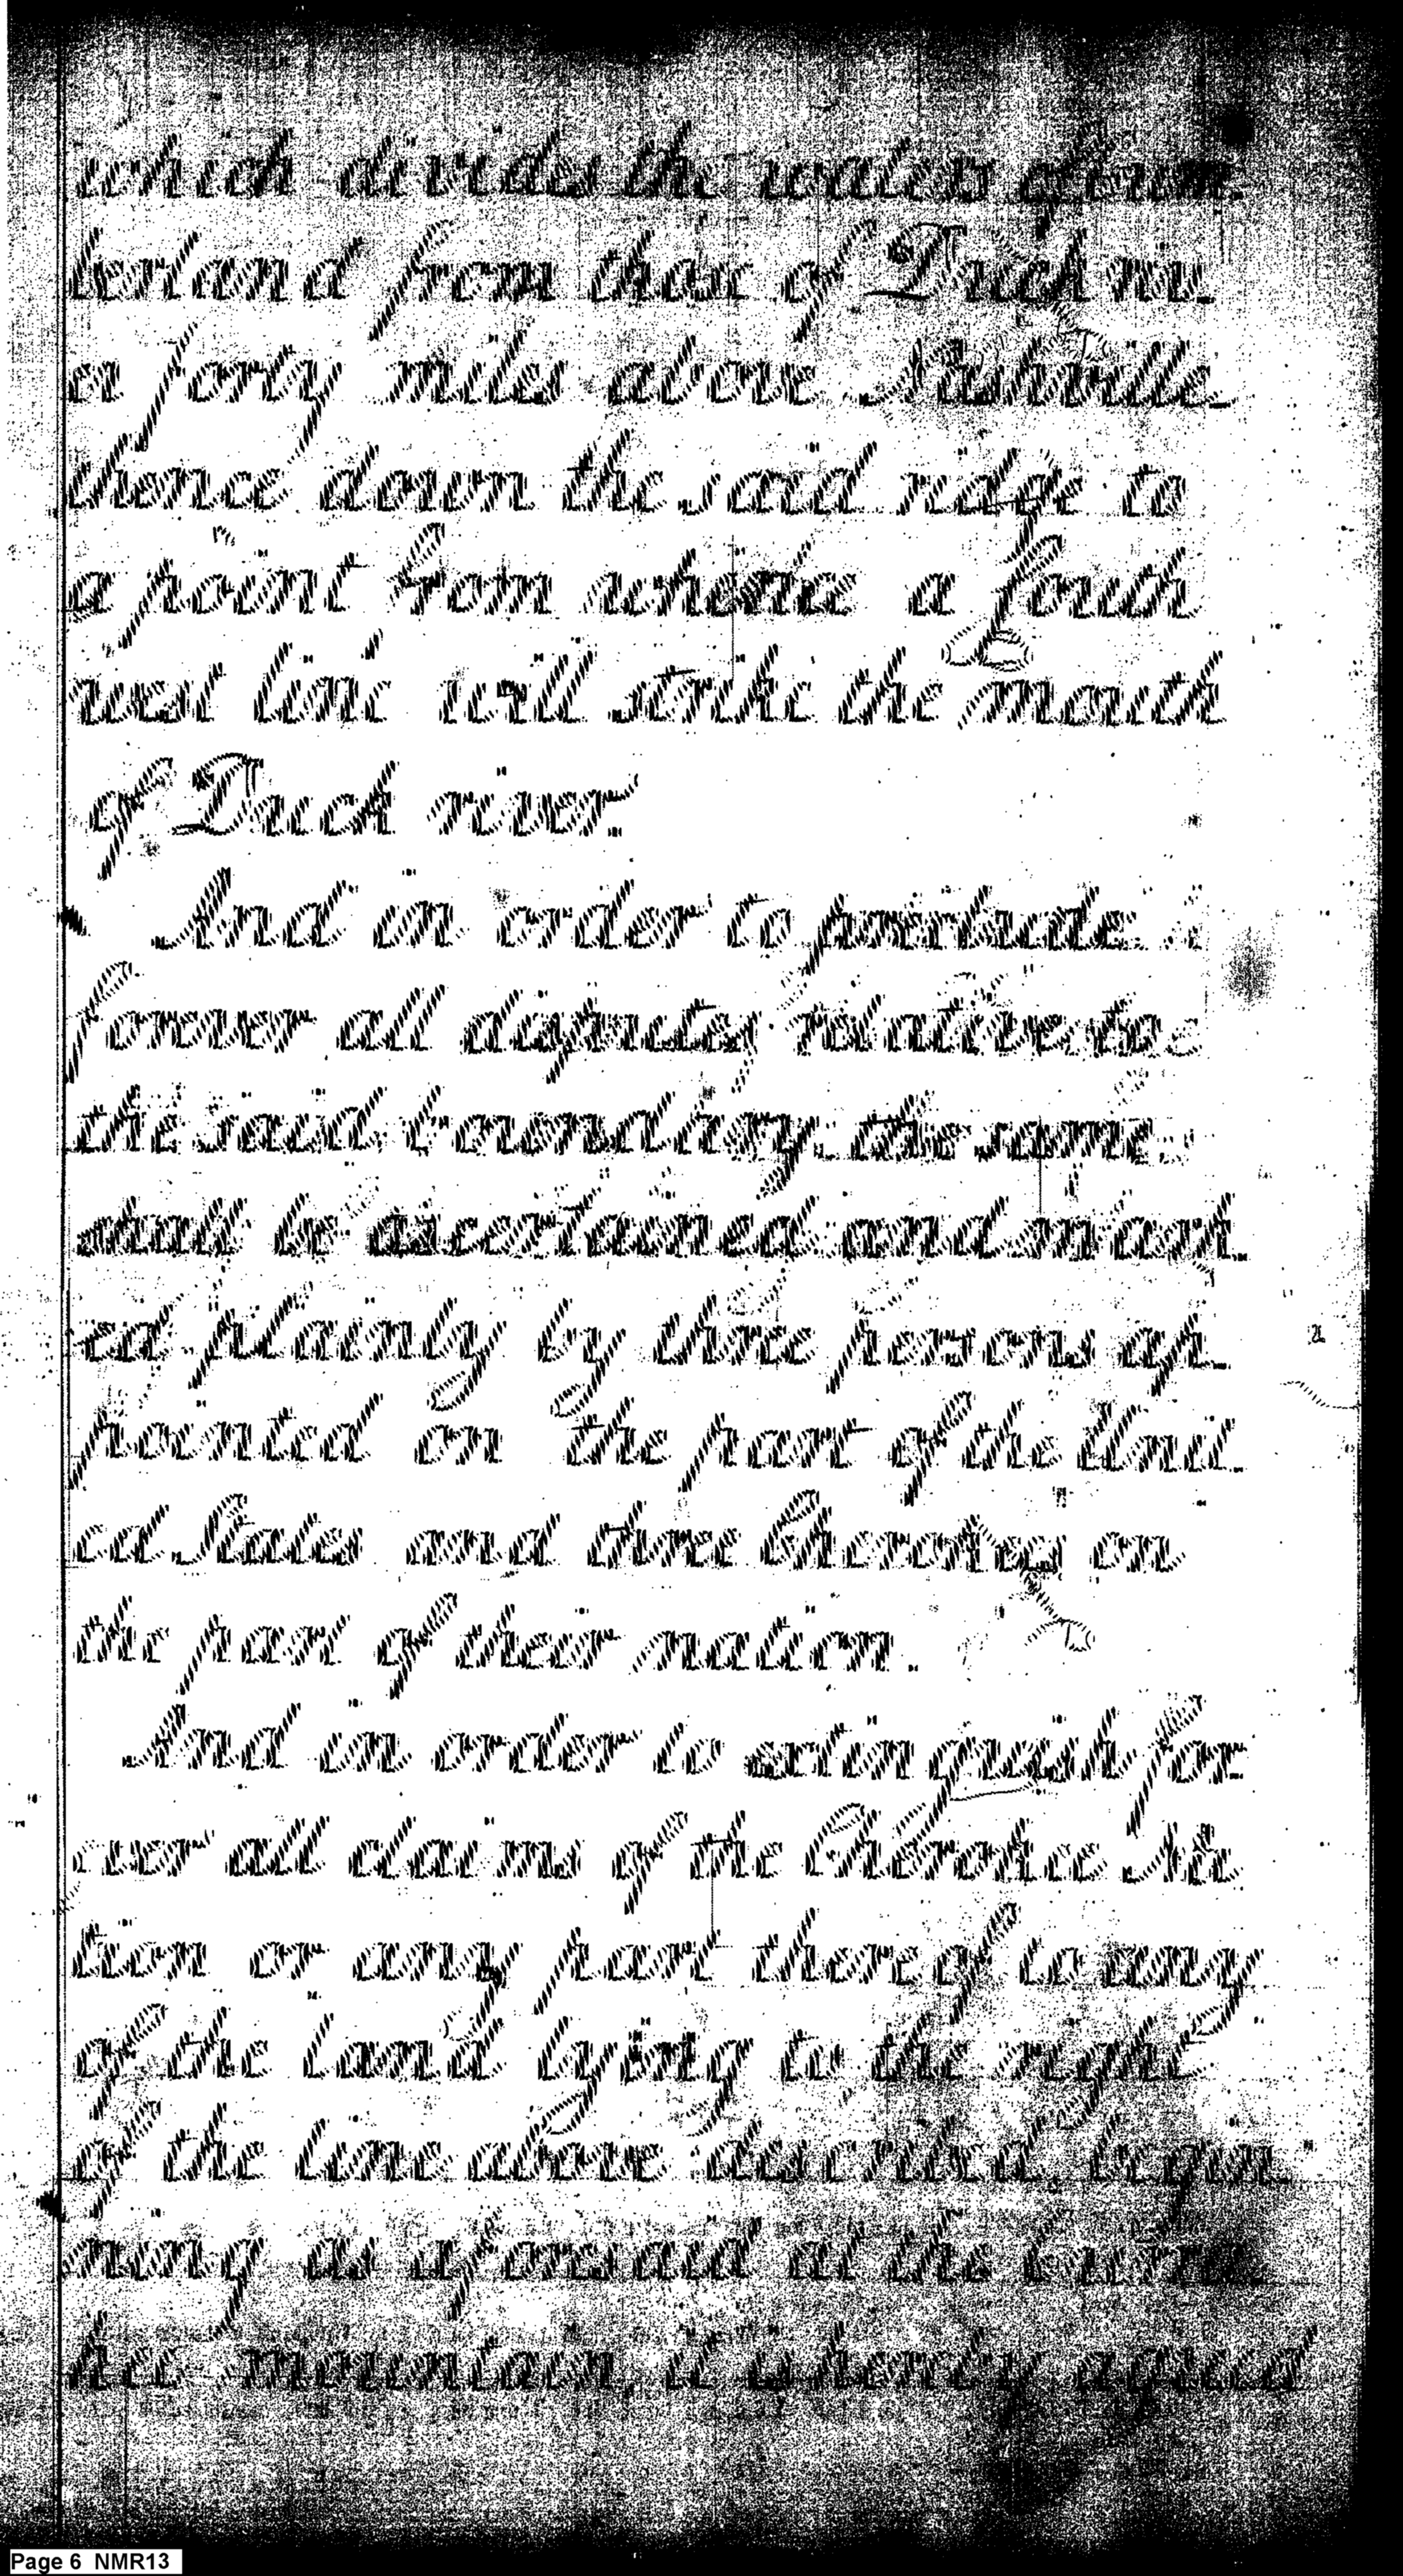 which divides the waters of Cum-
berland from those of Duck riv
a forty miles above Nashville
thence down the said ridge to
a point from whence a South
west line will strike the mouth
of Duck river.
And in order to preclude
forever all disputes relative to
the said boundary, the same
shall be ascertained and mark-
ed plainly by three persons ap-
pointed on the part of the Unit-
ed States and three Cherokees on
the part of their nation.
And in order to extinguish for-
ever all claims of the Cherokee Na
tion or any part thereof to any
of the land lying to the right
of the line above described, begin-
ning as aforesaid at the Currahee
mountain, it is hereby agreed
Page 6 NMR13